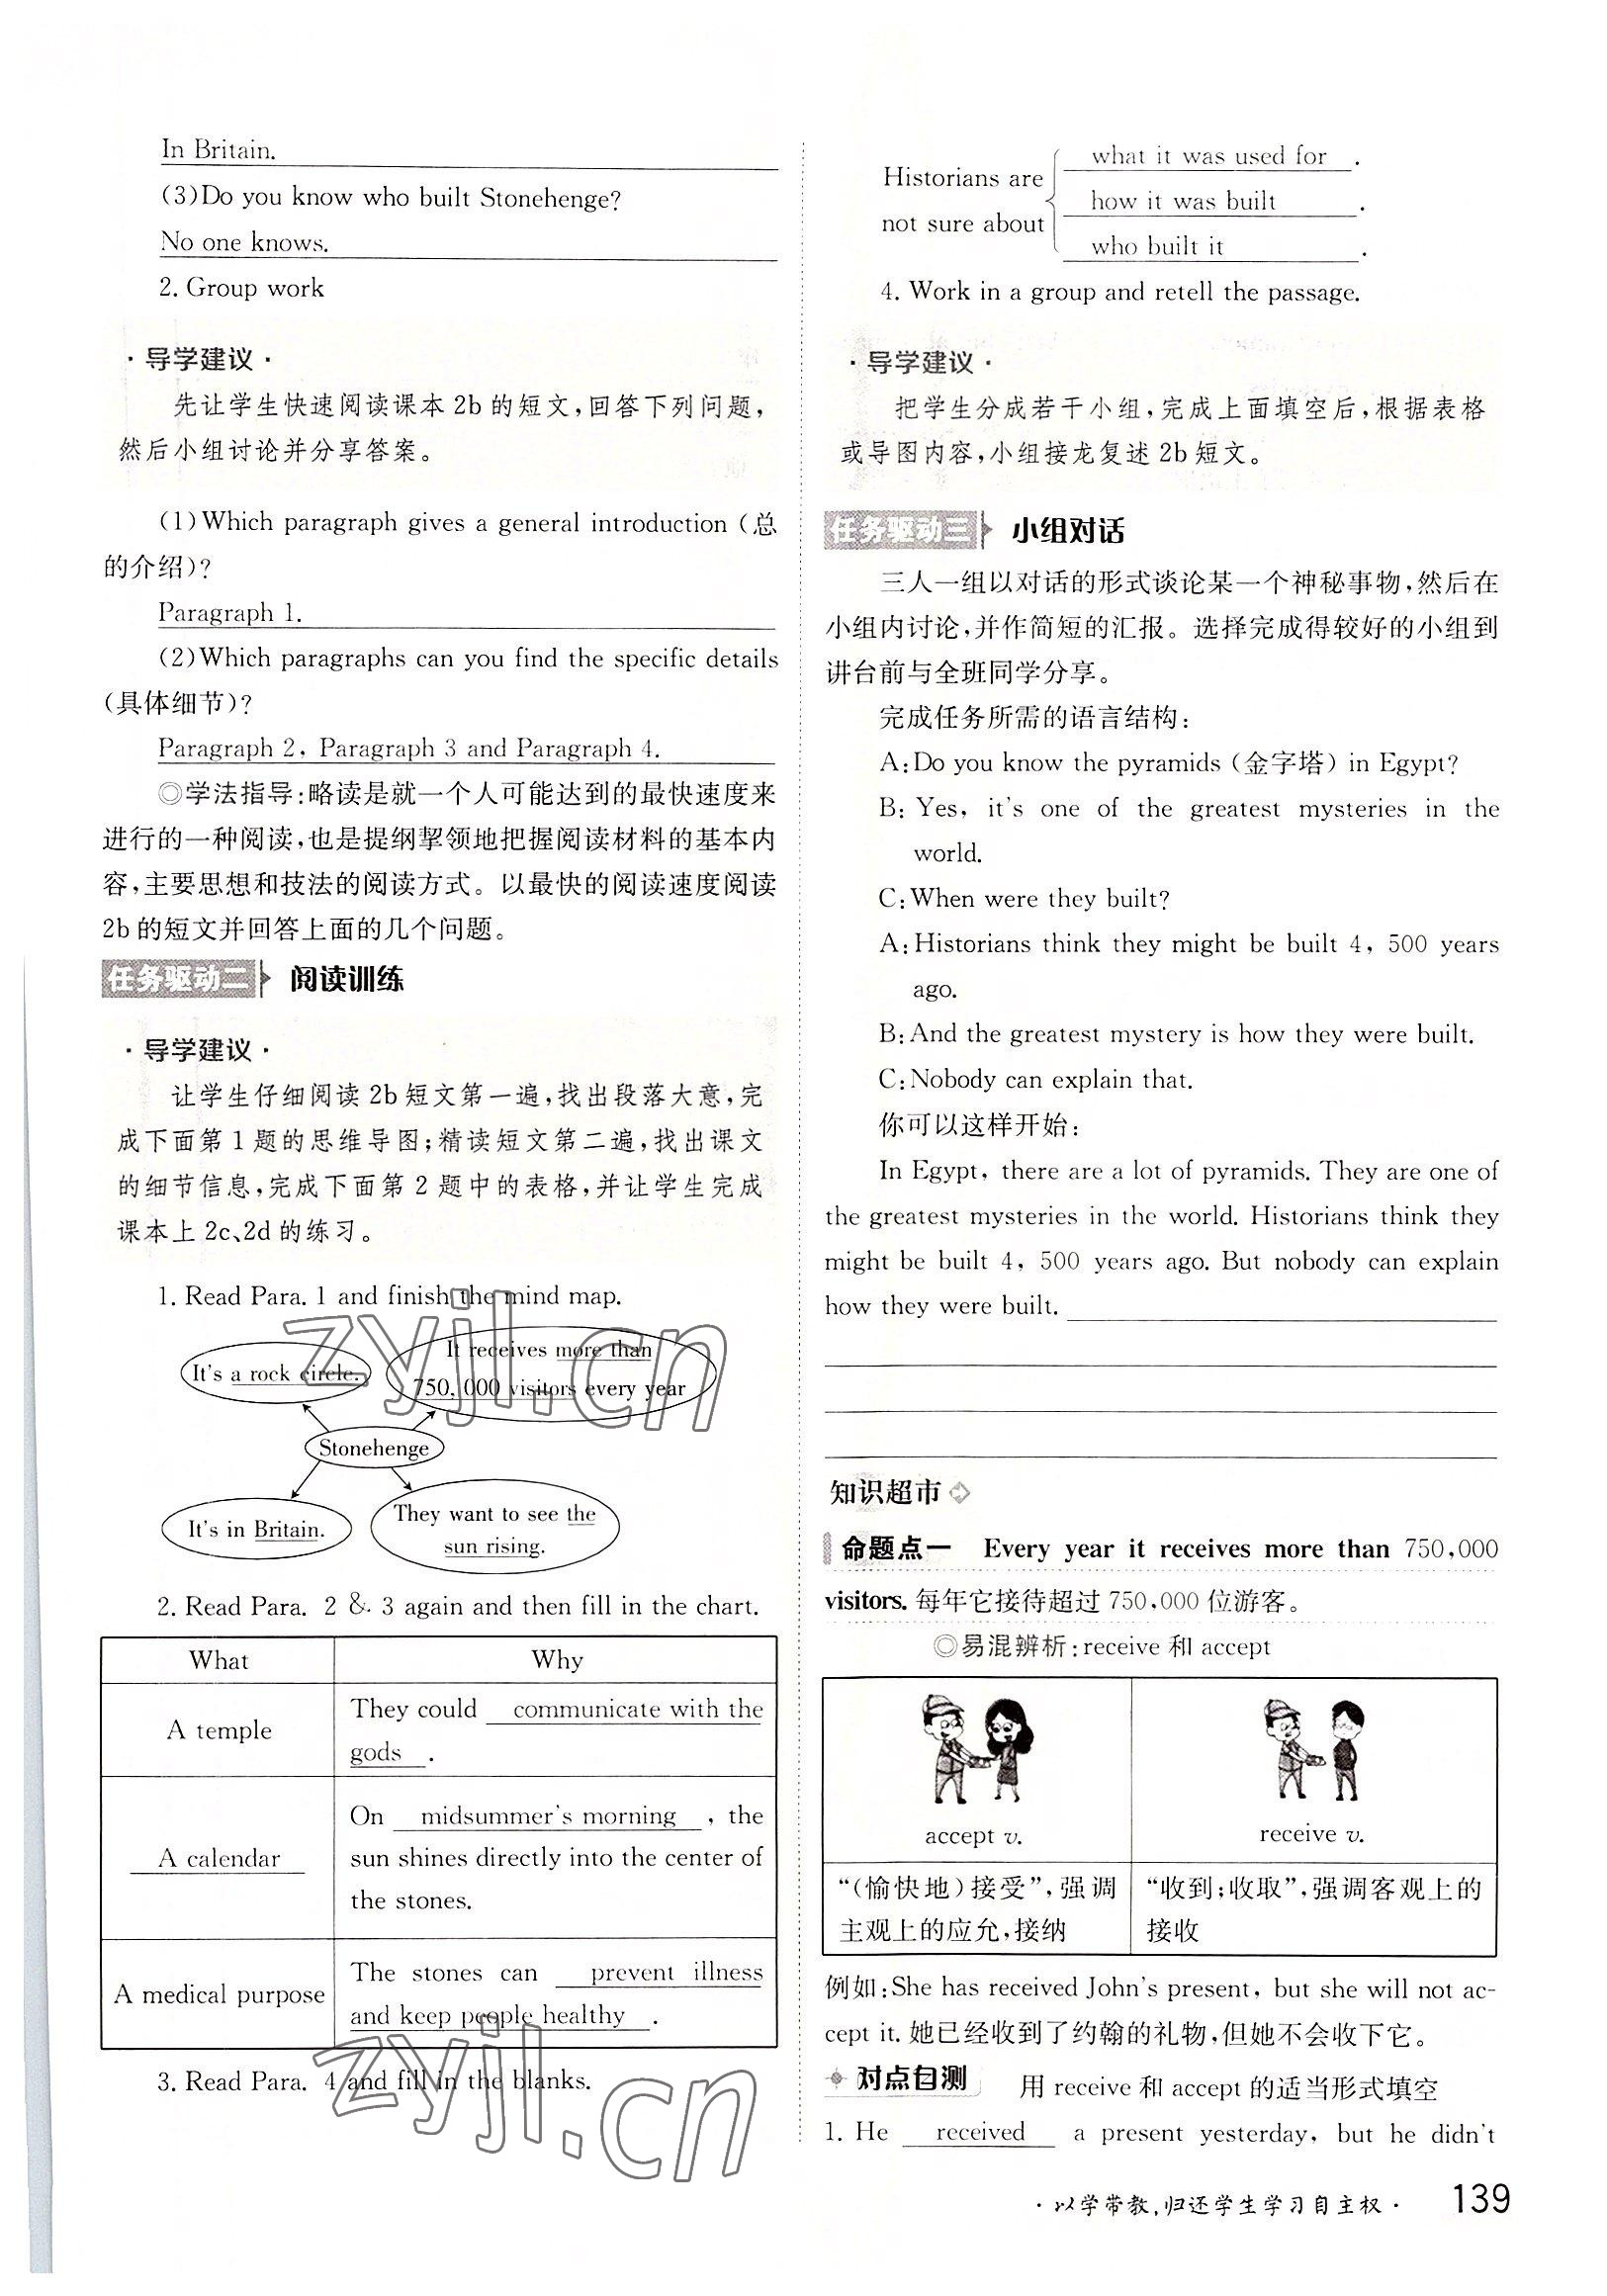 In Britain.
(3)Do you know who built Stonehenge?
No one knows.
2. Group work
·导学建议·
先让学生快速阅读课本 2b 的短文,回答下列问题,
然后小组讨论并分享答案。
(1)Which paragraph gives a general introduction(总
的介绍)?
Paragraph 1.
(2)Which paragraphs can you find the specific details
(具体细节)?
Paragraph 2, Paragraph 3 and Paragraph 4.
◎学法指导:略读是就一个人可能达到的最快速度来
进行的一种阅读,也是提纲挈领地把握阅读材料的基本内
容,主要思想和技法的阅读方式。以最快的阅读速度阅读
2b 的短文并回答上面的几个问题。
任务驱动二 阅读训练
·导学建议·
让学生仔细阅读 2b 短文第一遍,找出段落大意,完
成下面第 1 题的思维导图;精读短文第二遍,找出课文
的细节信息,完成下面第 2 题中的表格,并让学生完成
课本上 2c、2d 的练习。
1. Read Para. 1 and finish the mind map.
It's a rock circle.
It receives more than
750,000 visitors every year
Stonehenge
It's in Britain.
They want to see the
sun rising.
2. Read Para. 2 & 3 again and then fill in the chart.
What Why
A temple
They could communicate with the
gods .
A calendar
On midsummer's morning , the
sun shines directly into the center of
the stones.
A medical purpose
The stones can prevent illness
and keep people healthy .
3. Read Para. 4 and fill in the blanks.
Historians are
not sure about
what it was used for .
how it was built .
who built it .
4. Work in a group and retell the passage.
·导学建议·
把学生分成若干小组,完成上面填空后,根据表格
或导图内容,小组接龙复述 2b 短文。
任务驱动三 小组对话
三人一组以对话的形式谈论某一个神秘事物,然后在
小组内讨论,并作简短的汇报。选择完成得较好的小组到
讲台前与全班同学分享。
完成任务所需的语言结构:
A:Do you know the pyramids(金字塔)in Egypt?
B: Yes, it's one of the greatest mysteries in the
world.
C:When were they built?
A:Historians think they might be built 4, 500 years
ago.
B:And the greatest mystery is how they were built.
C:Nobody can explain that.
你可以这样开始:
In Egypt, there are a lot of pyramids. They are one of
the greatest mysteries in the world. Historians think they
might be built 4, 500 years ago. But nobody can explain
how they were built.
知识超市
命题点一 Every year it receives more than 750,000
visitors. 每年它接待超过 750,000 位游客。
◎易混辨析:receive 和 accept
accept v.
receive v.
“(愉快地)接受”,强调
主观上的应允,接纳
“收到;收取”,强调客观上的
接收
例如:She has received John's present, but she will not ac-
cept it. 她已经收到了约翰的礼物,但她不会收下它。
对点自测 用 receive 和 accept 的适当形式填空
1. He received a present yesterday, but he didn't
·以学带教,归还学生学习自主权· 139
zyjl.cn
zyjl.cn